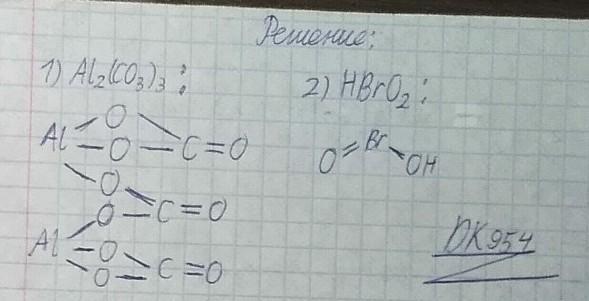 Решение:
1) Al₂(CO₃)₃:
2) HBrO₂:
O
Al O C=O
O
O C=O
Al O
O C=O
O=Br-OH
DK954